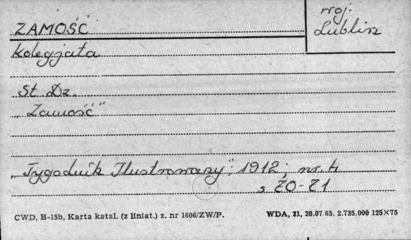 ZAMOŚĆ
woj.
Lublin
kolegjata
St. Dz.
„Zamość”
„Tygodnik Ilustrowany”, 1912, nr. 4
s 20-21
CWD, B-15b, Karta katal. (z liniat.) z. nr 1606/ZW/P.
WDA, 21, 20.07.65. 2.735.000 125×75